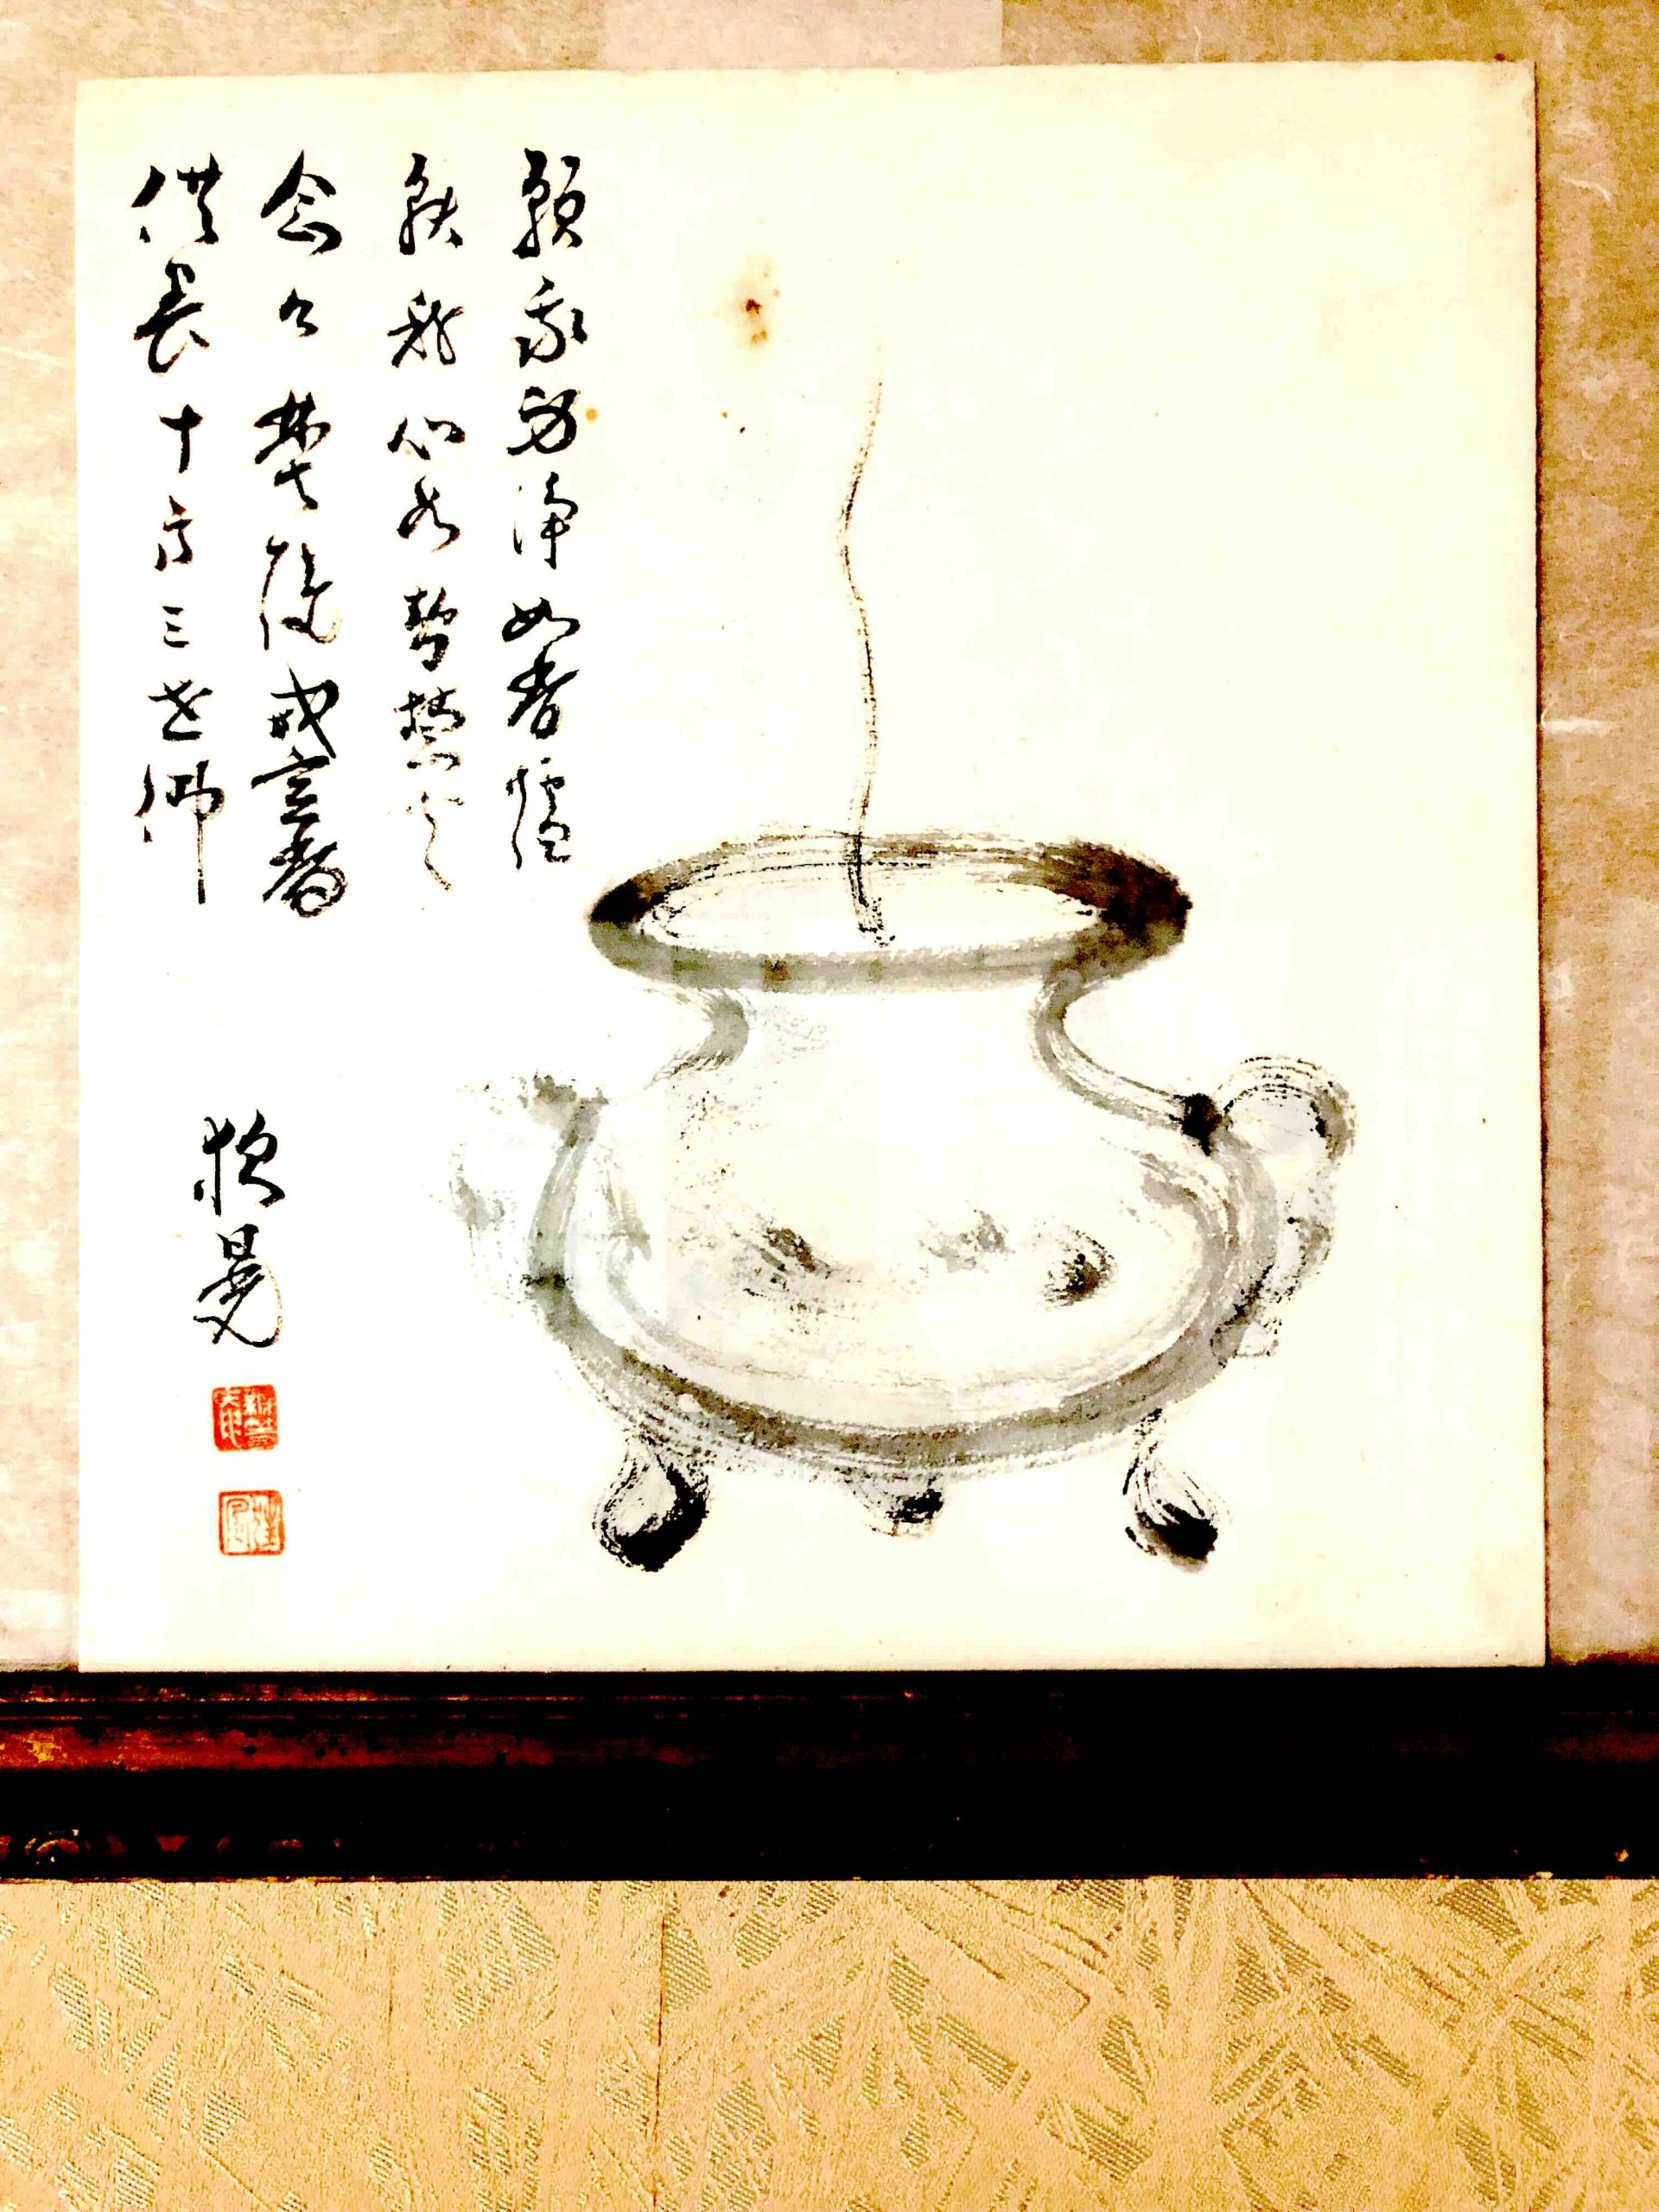 願我身淨如香爐
願我心如智慧火
念々焚燒戒定香
供養十方三世佛